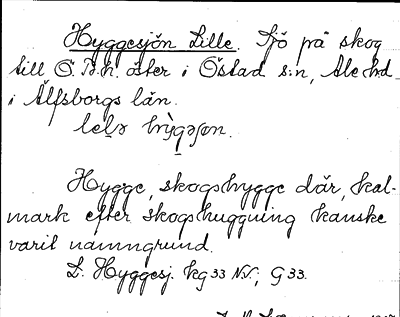 Hyggesjön Lille. Sjö på skog
till Ö. Bh. öster i Östad s:n, Ale hd
i Älfsborgs län.
lelə hỳgəʃøn.
Hygge, skogshygge där, kal-
mark efter skogshuggning kanske
varit namngrund.
L. Hyggesj. kg 33 NV; G 33.